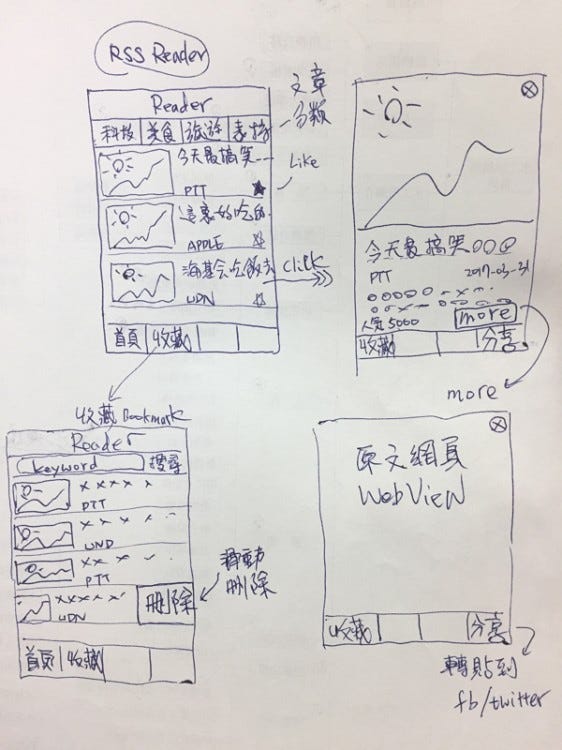 RSS Reader
Reader
科技 美食 旅遊
文章
分類
今天最搞笑
PTT
Like
這家好吃的
APPLE
海基会吃飯去
UDN
click
首頁 收藏
今天最搞笑
PTT 2017-03-31
人氣 5000 more
收藏 分享
more
收藏 Bookmark
Reader
keyword 搜尋
xxxx x
PTT
xxxx
UND
xx x
PTT
xxxxx
UDN
刪除
刪除
首頁 收藏
原文網頁
WebView
收藏 分享
轉貼到
fb/twitter